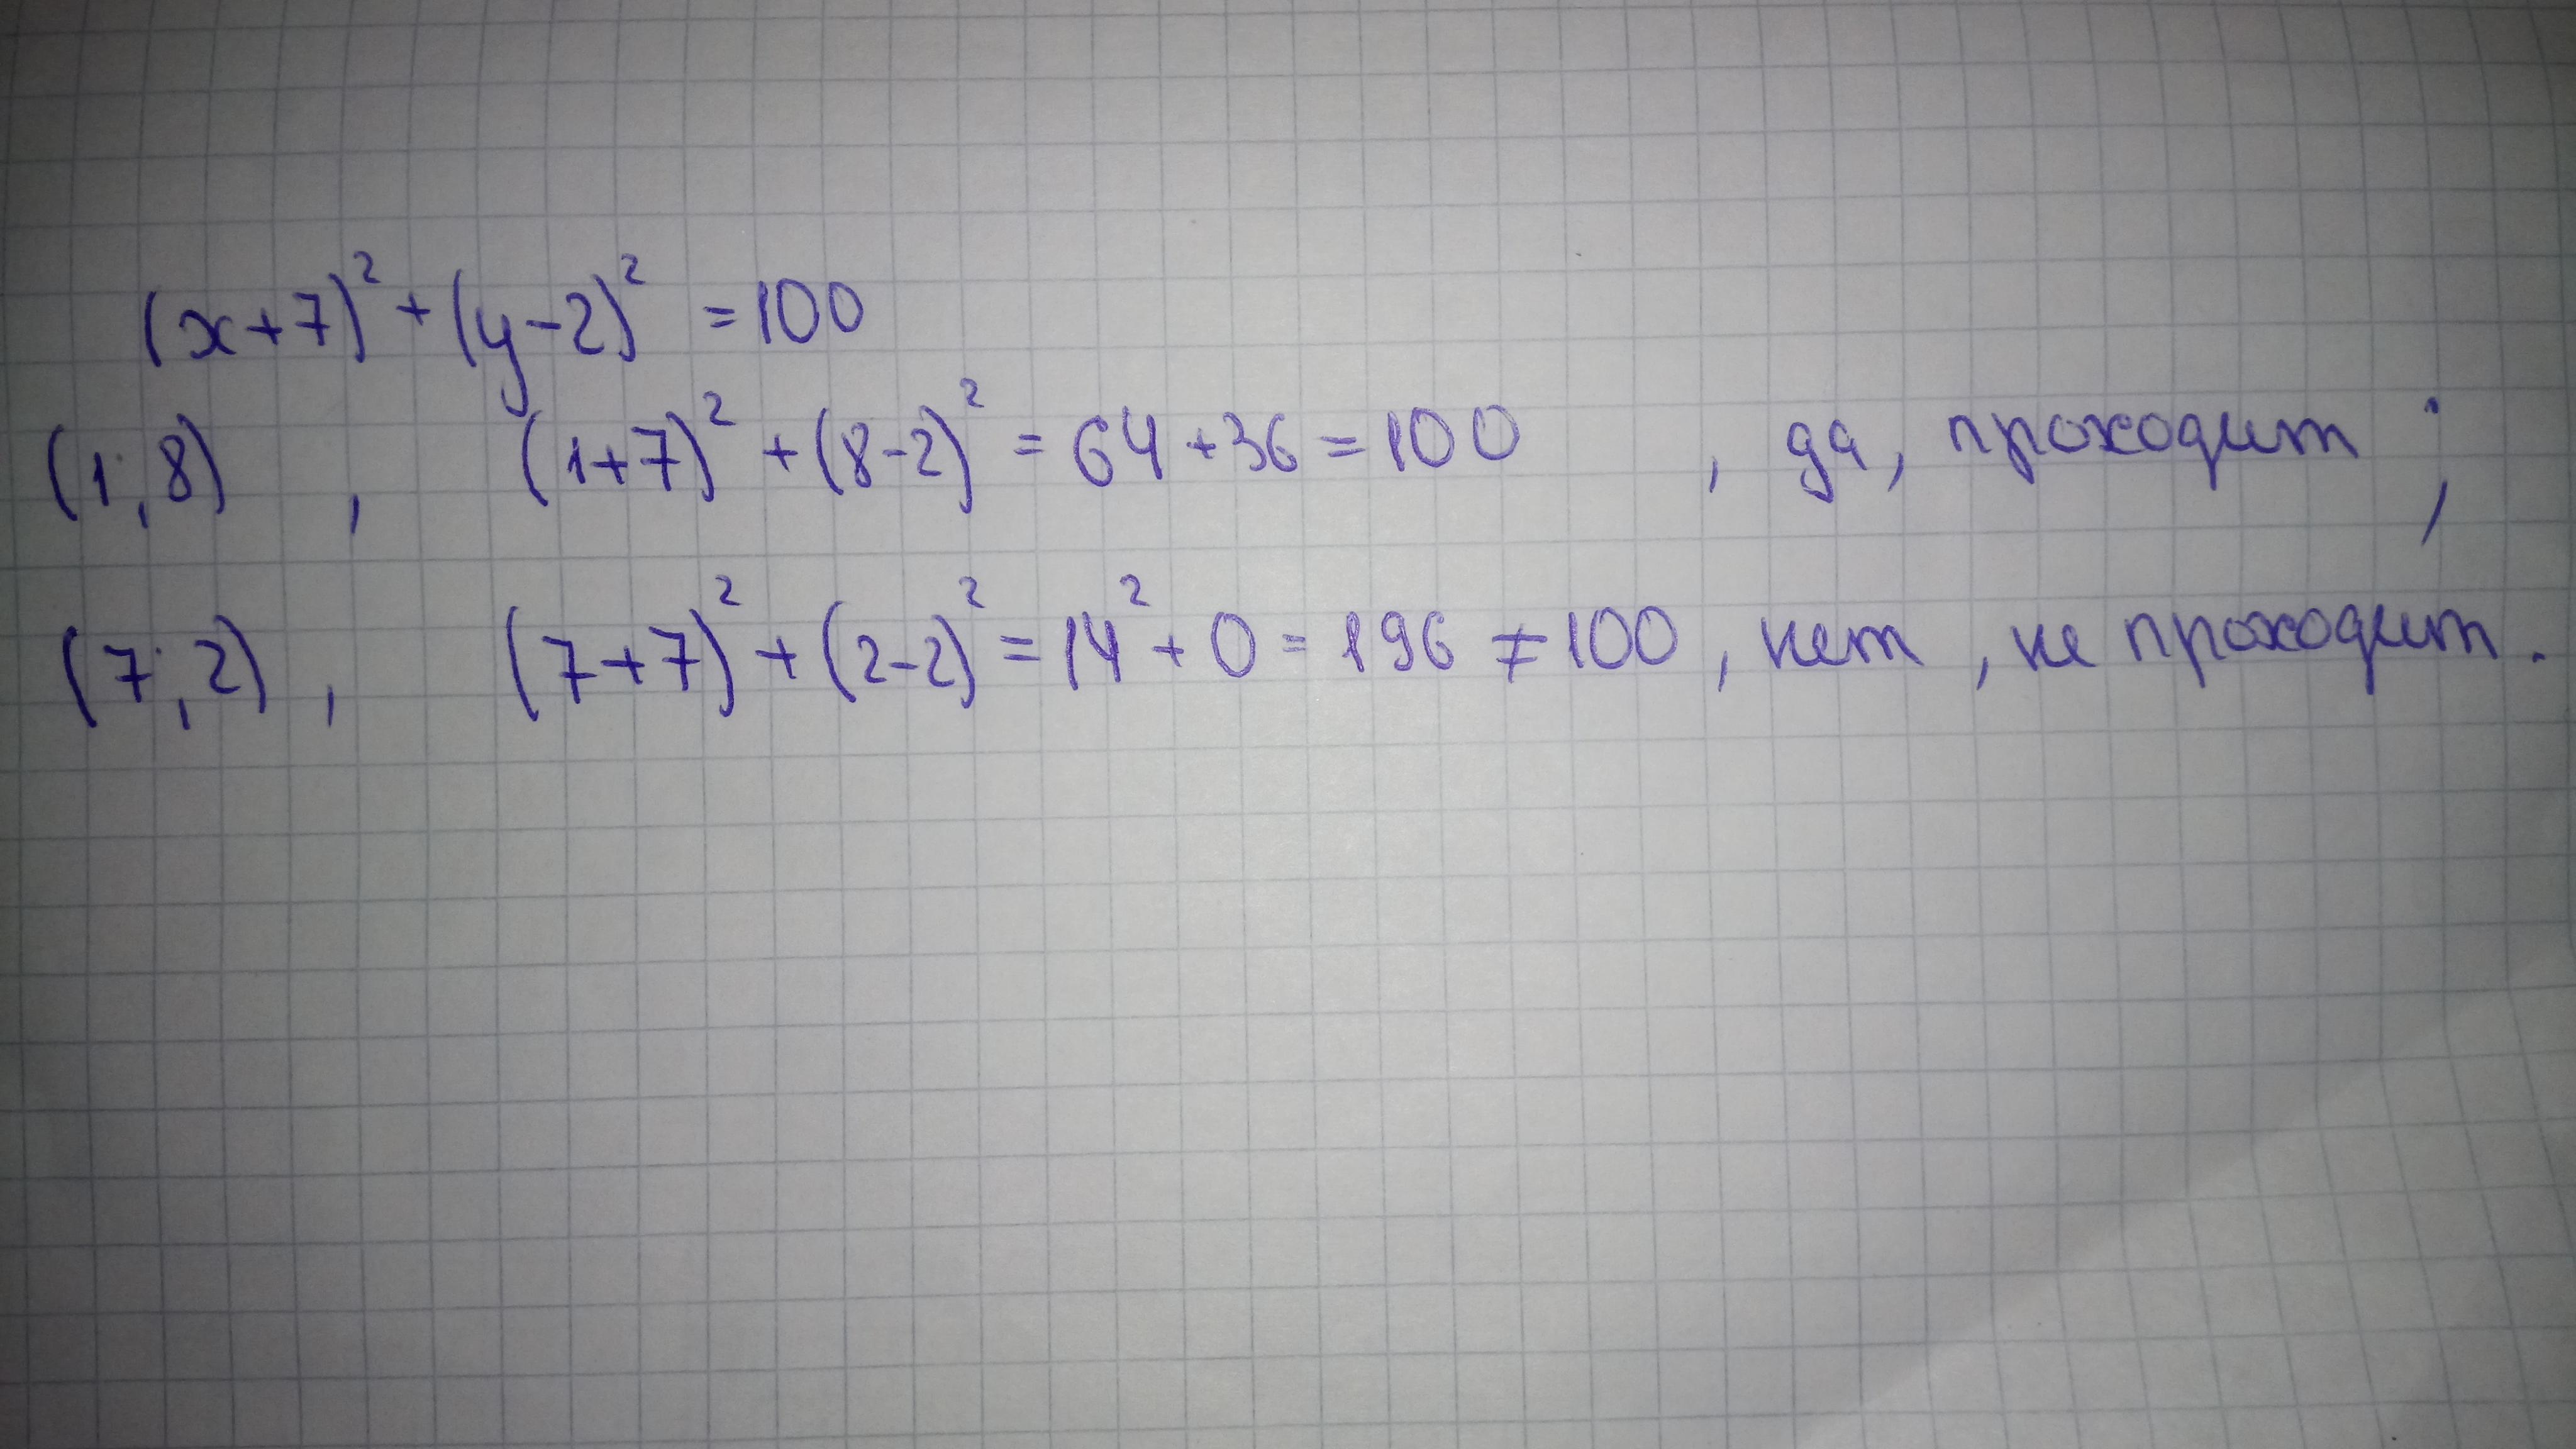 (x+7)² + (y-2)² = 100
(1; 8) , (1+7)² + (8-2)² = 64 + 36 = 100 , да, проходит ;
(7; 2) , (7+7)² + (2-2)² = 14² + 0 = 196 ≠ 100 , нет , не проходит .